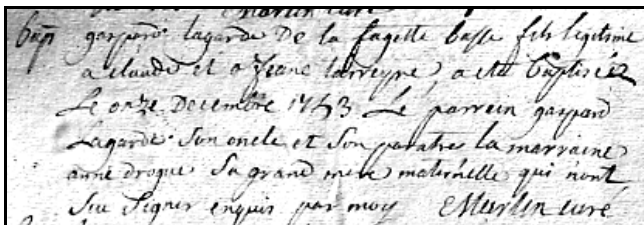 Martin curé
bap gaspard lagarde De la fagette basse fils legitime
a claude et a Jeane larreyre, a ete baptisé
Le onze Decembre 1743 Le parrein gaspard
Lagarde Son oncle et Son paratre la marraine
anne drogue Sa grand mere maternelle qui n'ont
Sçu Signer enquis par moy Martin curé